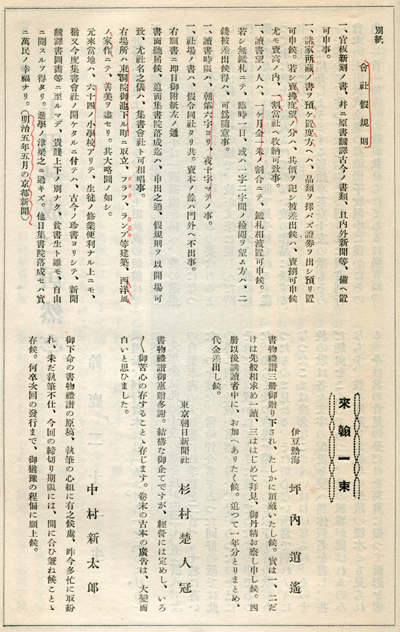 別紙
會社假規則
一、官板新刻ノ書、幷ニ原書飜譯古今ノ書類、且內外新聞等、備ヘ置
可申事。
一、諸家所藏ノ書ヲ預ケ置度方ヘハ、品類ヲ擇バズ證券ヲ出シ預リ置
可申候。若シ賣捌度望ノ分ハ、其價ヲ記シ被差出候ハヾ、賣捌可申候
尤モ賣高ノ內、一割當社ヘ收納可致事。
一、讀書望ノ人ハ、一ヶ月金一朱ノ割ニテ、鑑札相渡置可申候。
若シ無鑑札ニテ、臨時一日、或ハ一字二字間ノ檢閱ヲ望ム方ハ、二
錢被差出候得バ、可爲隨意事。
一、讀書時限ハ、朝第六字ヨリ、夜十字マデノ事。
一、社場ノ書ハ、假令同社タリ共、賣本ノ餘ハ門外ヘ不出事。
右願書ニ卽日御附紙左ノ通
書面聽屆候、追而集書院落成迄ハ、申出之通、假規則ヲ以開場可
致、尤社名之儀ハ、集書會社ト可相唱事。
右場所ハ東洞院御池下ル町ニ取立、フラフ、ランプ等建築、西洋風
ノ家作ニテ、善美ヲ盡セリ。其大略圖ノ如シ。
元來當地ハ、六十四ノ小學校アリテ、生徒ノ修業便利ナル上ニモ、
猶又今度集書會社ノ開ケタルニ付テハ、古今ノ珍書ヨリシテ、新聞
飜譯書圖畫等ニ至ルマデ、貴賤上下ノ別ナク、貧書生ト雖モ、自由
ニ閱スルヲ得タリ。進學ノ津梁之ニ過キズ。他日集書院落成セバ實
ニ萬民ノ幸福ナリ。(明治五年五月の京都新聞)
來翰一束
伊豆熱海 坪內逍遙
書物禮讃三册御贈り下され、たしかに頂戴いたし候。實は一、二だ
けは先般相求め一讀、三ははじめて拜見、御丹精お察し申し候。四
册以後購讀者中に、お加へありたく候。追つて一年分とりまとめ、
代金差出し候。
東京朝日新聞社 杉村楚人冠
書物禮讃御惠贈多謝。結構な御企てですが、經營には定めし、いろ
〱御苦心の存することゝ存じます。卷末の古本の廣告は、大變面
白いと思ひました。
中村新太郎
御下命の書物禮讃の原稿、執筆の心組に有之候處、昨今多忙に取紛
れ、未だ執筆不仕、今回の締切り期限には、間に合ひ兼ね候ことゝ
存候。何卒次回の發行まで、御猶豫の程偏に願上候。